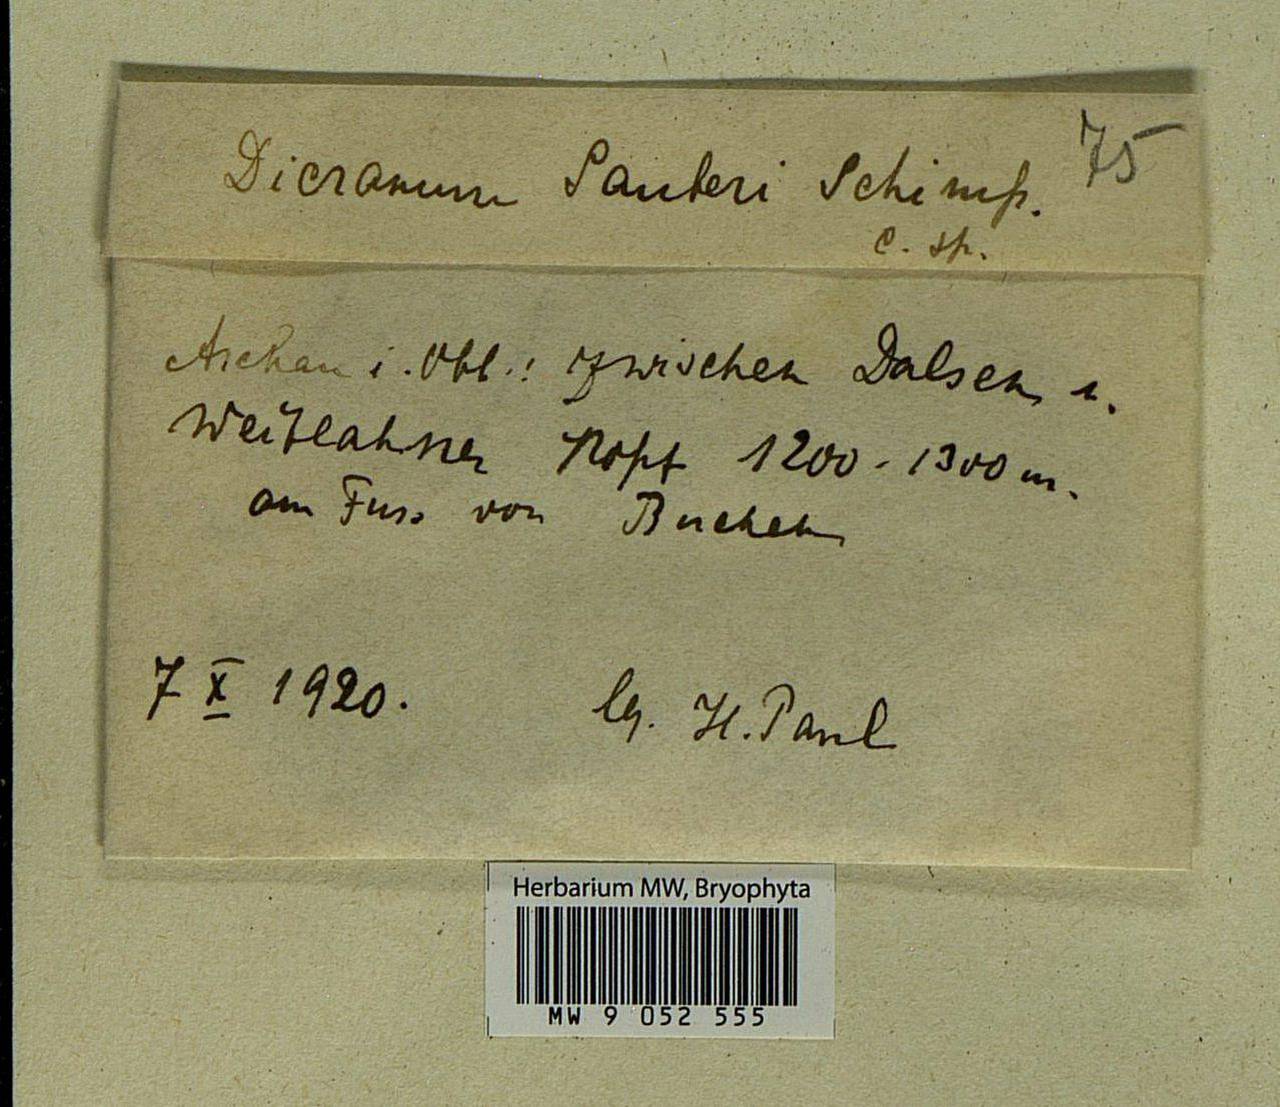 Dicranum Sauteri Schimp. 75
c. sp.
Aschau i. Obb.: zwischen Dalsen u.
Weitlahner Kopf 1200-1300 m.
am Fuss von Buchen
7 X 1920. lg. H. Paul
Herbarium MW, Bryophyta
MW 9 052 555